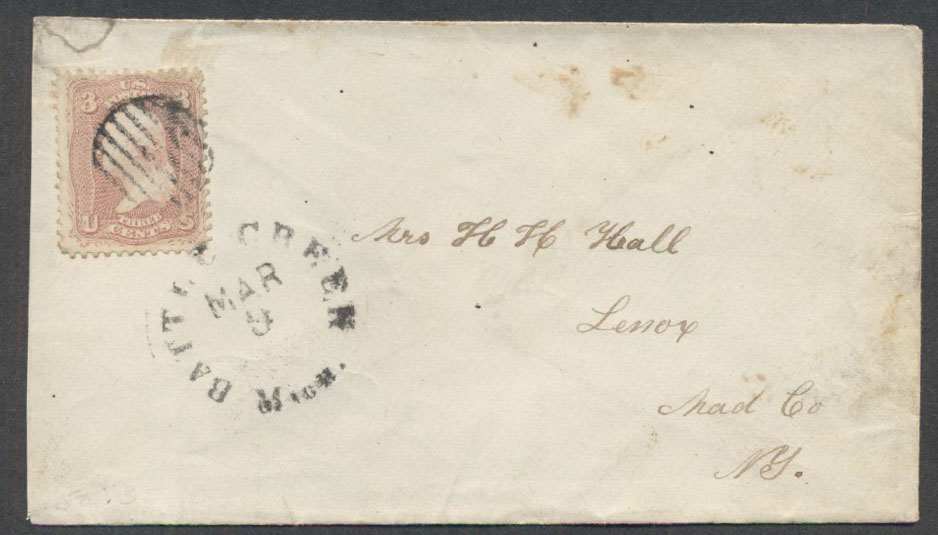 U.S.
3 3
U S
THREE
CENTS
BATTLE CREEK
MICH.
MAR
9
Mrs H H Hall
Lenox
Mad Co
N.Y.